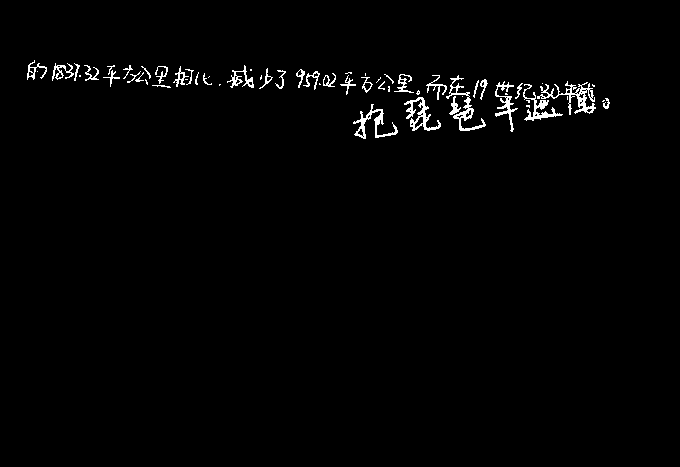 的1837.32平方公里相比.减少了959.02平方公里。而在19世纪30年
抱琵琶半遮面。